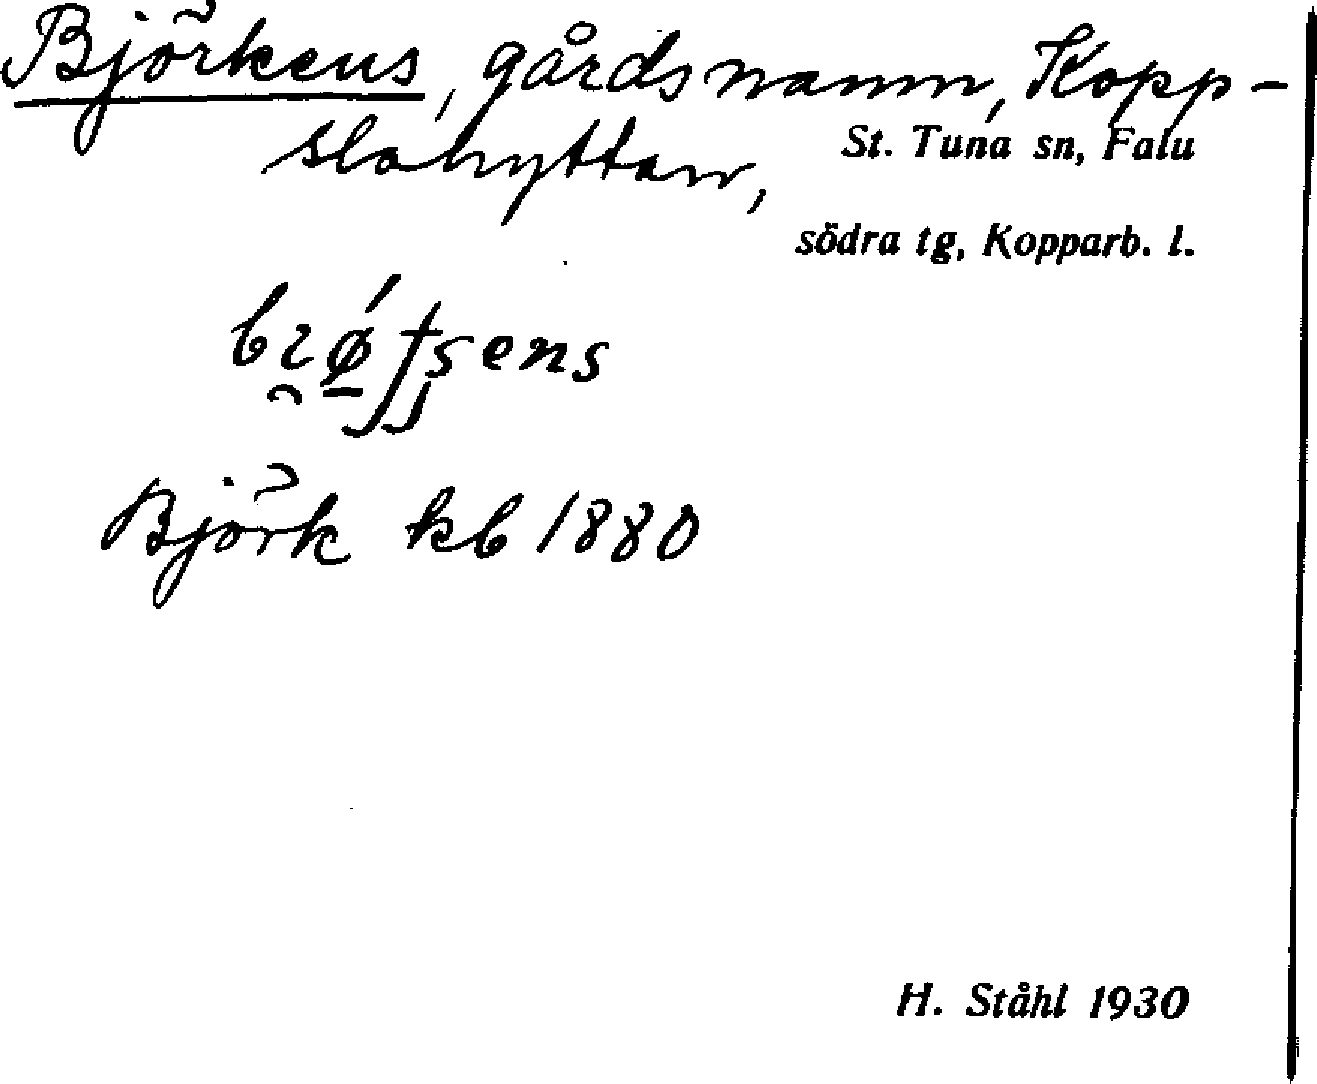 Björkens, gårdsnamn, Kopp-
slahyttan,
St. Tuna sn, Falu
södra tg, Kopparb. l.
Björk kb 1880
H. Ståhl 1930